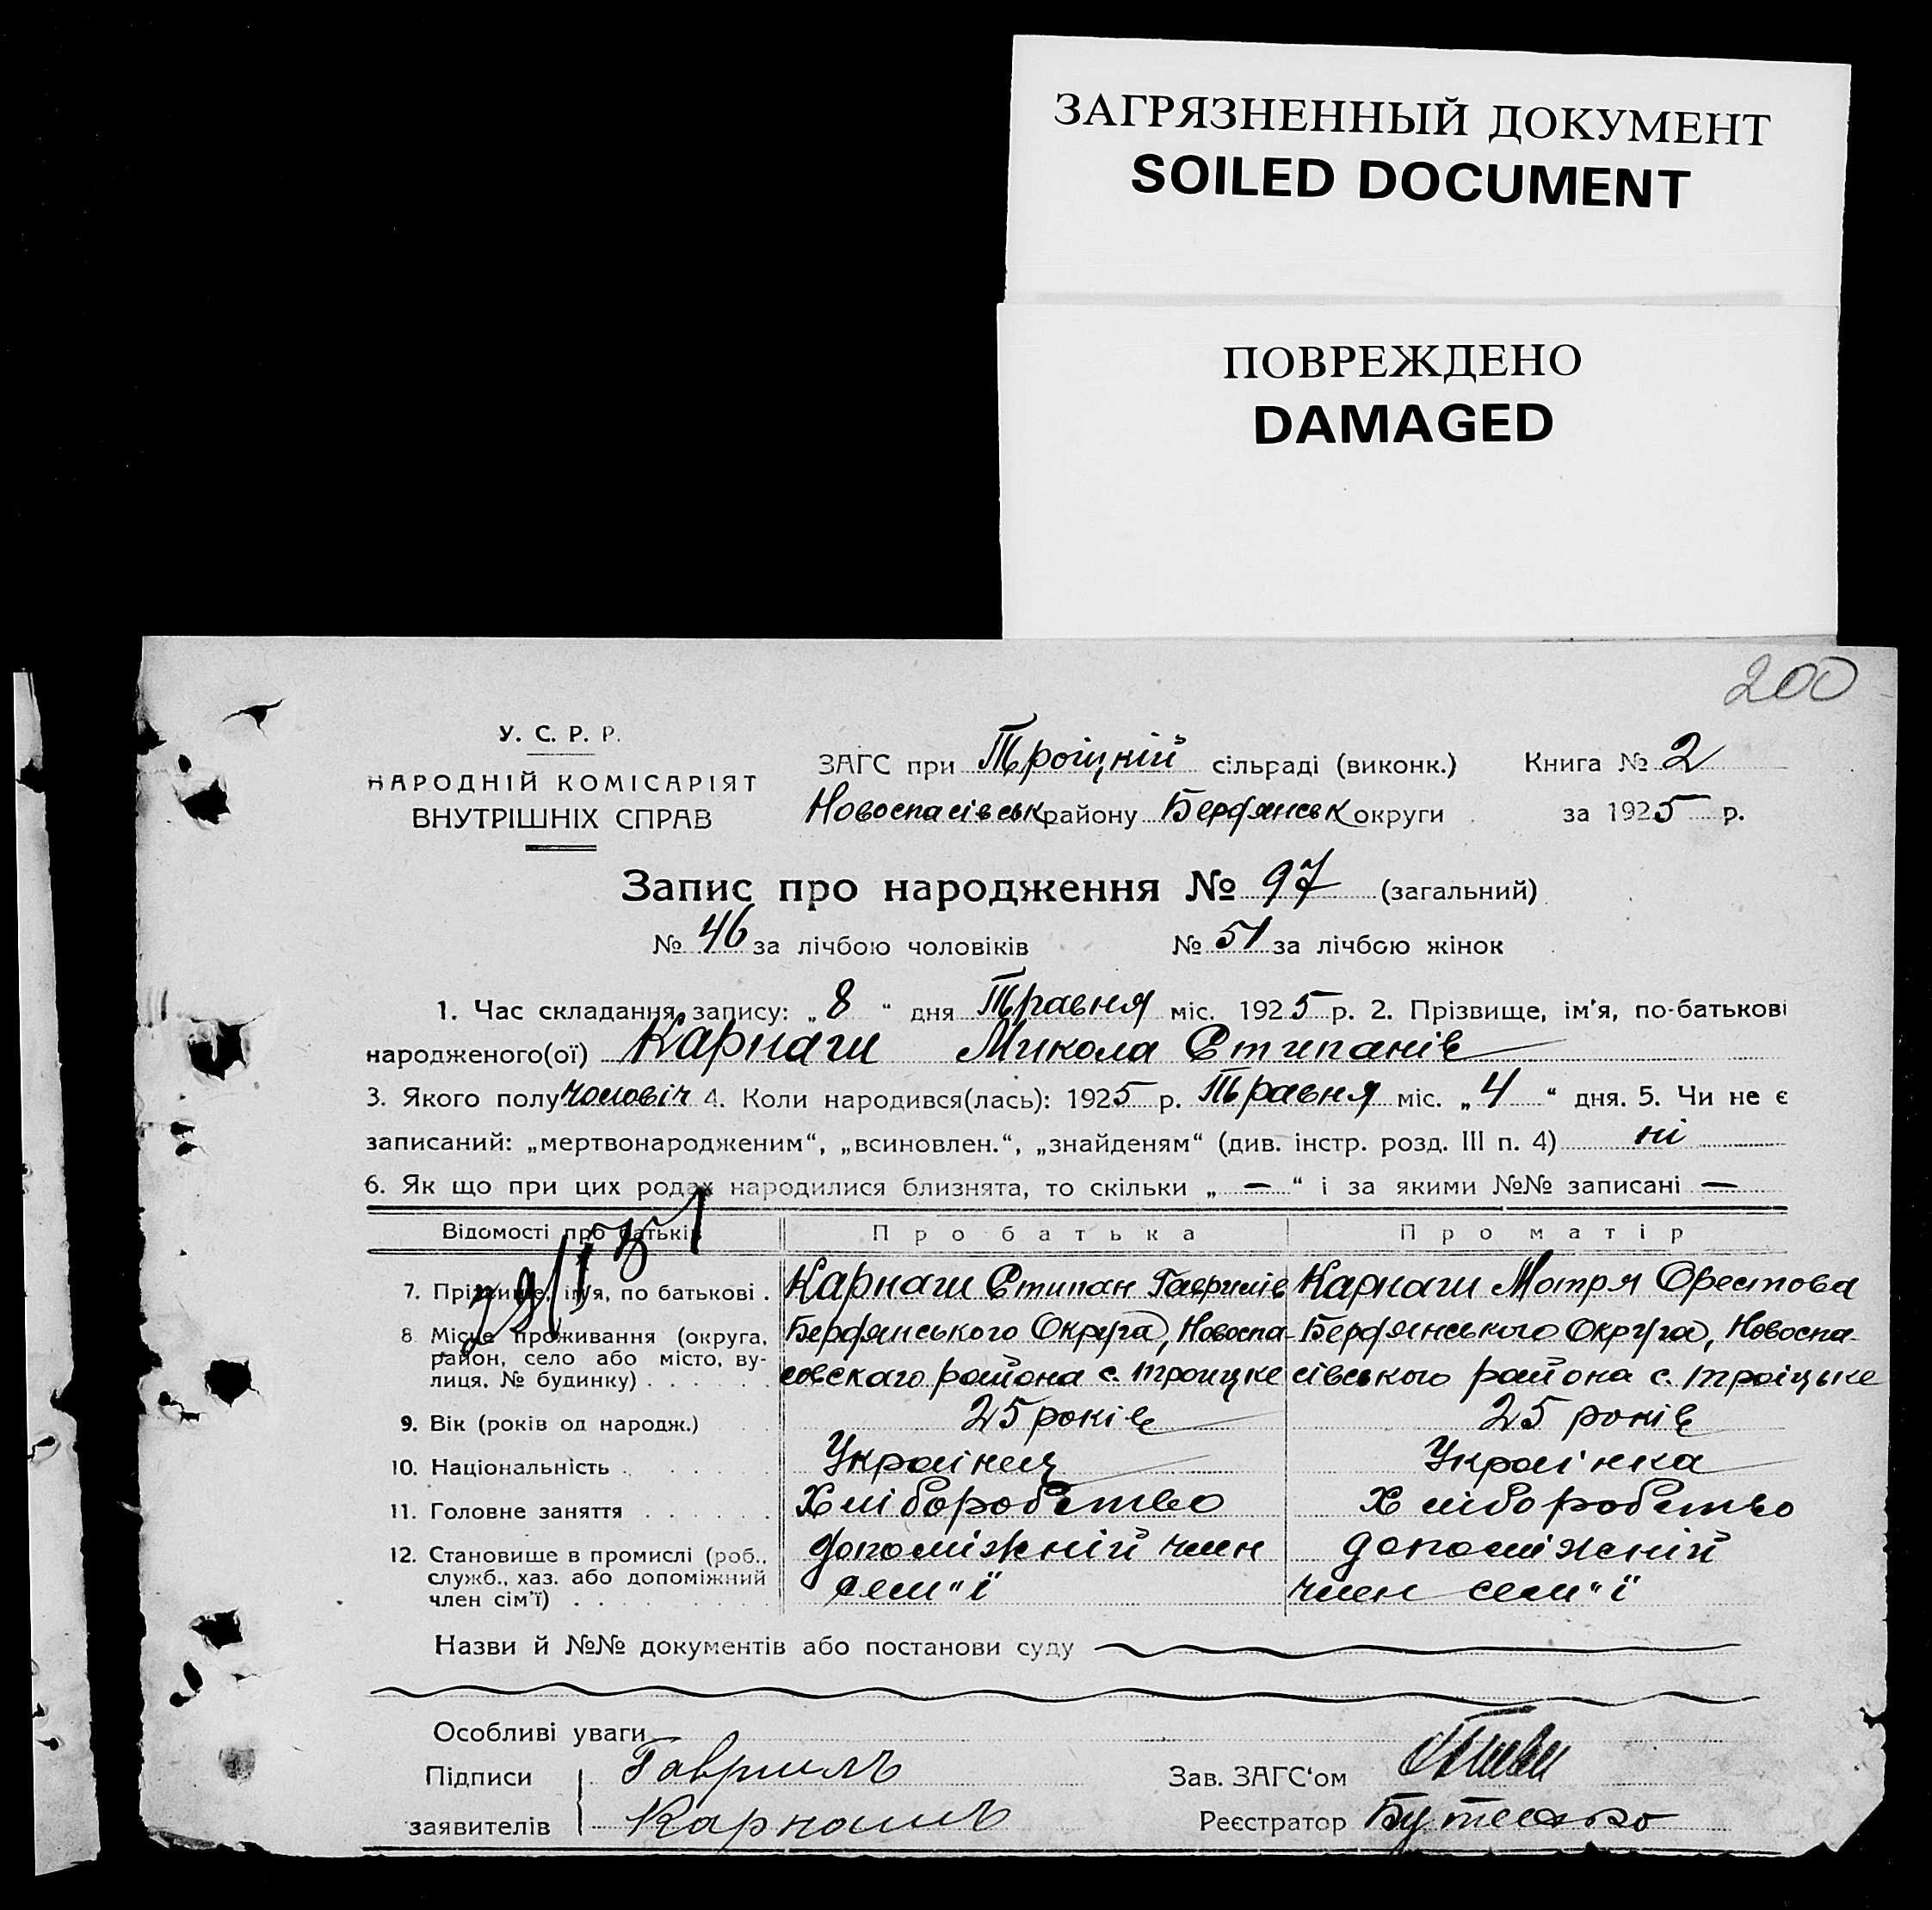 ЗАГРЯЗНЕННЫЙ ДОКУМЕНТ
SOILED DOCUMENT
ПОВРЕЖДЕНО
DAMAGED
200
У. С. Р. Р.
НАРОДНІЙ КОМІСАРІЯТ
ВНУТРІШНІХ СПРАВ
ЗАГС при Троіцкій сільраді (виконк.) Книга № 2
Новоспасівськ району Бердянськ округи за 1925 р.
Запис про народження № 97 (загальний)
№ 46 за лічбою чоловіків № 51 за лічбою жінок
1. Час складання запису: „8“ дня Травня міс. 1925 р. 2. Прізвище, ім'я, по-батькові
народженого(ої) Карнаш Микола Стипанів
3. Якого полу чоловіч 4. Коли народився(лась): 1925 р. Травня міс. „4“ дня. 5. Чи не є
записаний: „мертвонародженим“, „всиновлен.“, „знайденям“ (див. інстр. розд. III п. 4) ні
6. Як що при цих родах народилися близнята, то скільки „—“ і за якими №№ записані —
Відомості про батьків Про батька Про матір
7. Прізвище, ім'я, по батькові . Карнаш Стипан Гаврилів Карнаш Мотря Орестова
8. Місце проживання (округа, Бердянського Округа, Новоспа- Бердянського Округа, Новоспа-
район, село або місто, ву-
лиця, № будинку) . . . . . . совскаго района с. Троицке сівського района с. Троіцьке
9. Вік (років од народж.) 25 років 25 років
10. Національність . . . . . Украінец Украінка
11. Головне заняття . . . . . . Хліборобство Хліборобство
12. Становище в промислі (роб., допоміжній член допоміжній
служб., хаз. або допоміжний сем"ї член сем"ї
член сім'ї) . . . . . . . . .
Назви й №№ документів або постанови суду
Особливі уваги
Підписи Гаврилъ Зав. ЗАГС'ом
заявителів Карнашъ Реєстратор